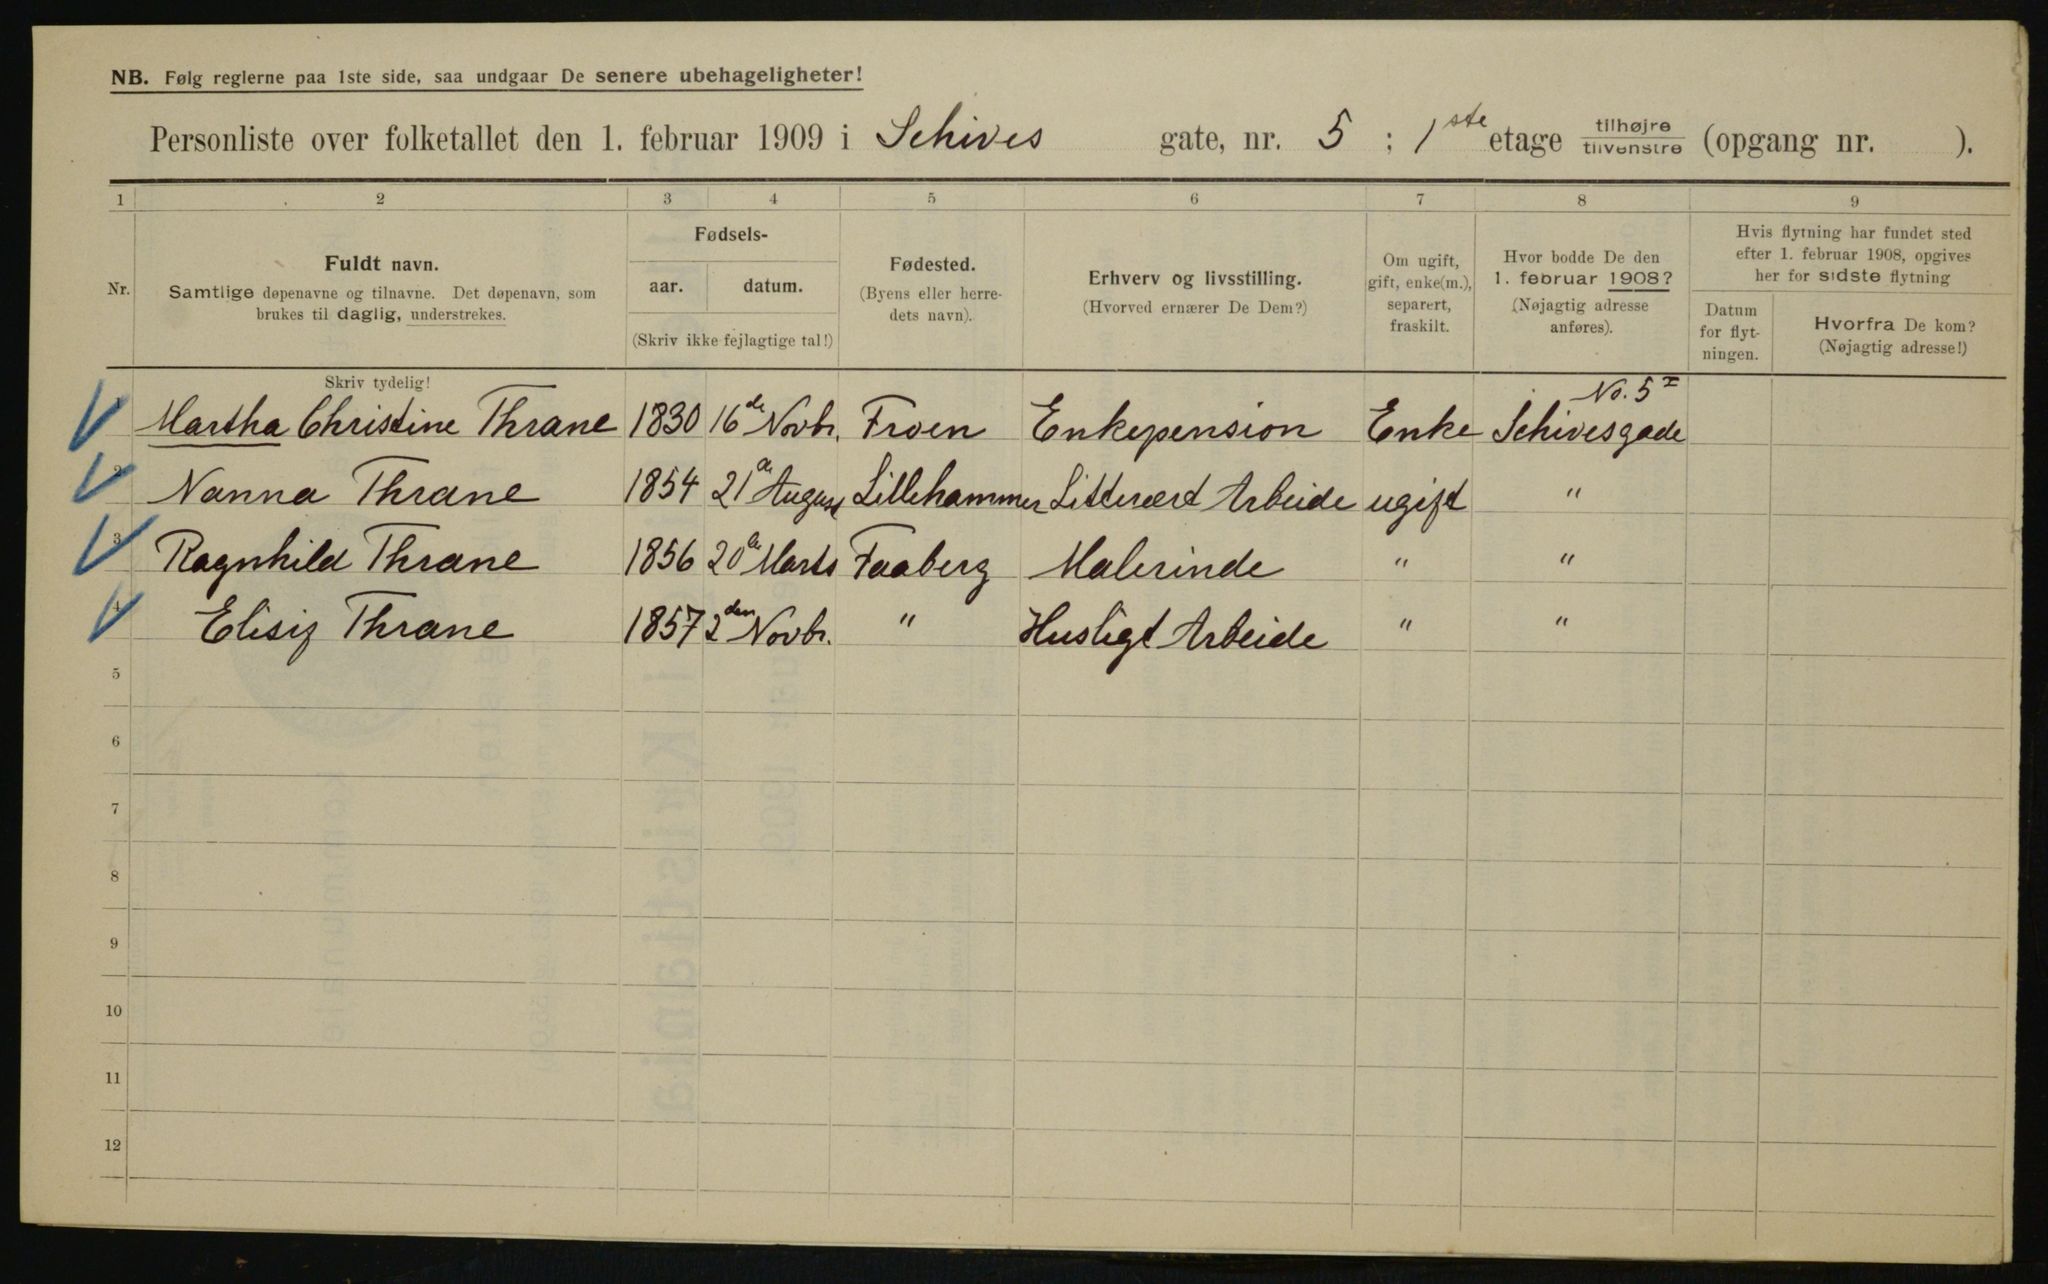 NB. Følg reglerne paa 1ste side, saa undgaar De senere ubehageligheter!
Personliste over folketallet den 1. februar 1909 i Schives gate, nr. 5 ; 1ste etage tilhøjre tilvenstre (opgang nr. ).
1 2 3 4 5 6 7 8 9
Nr.
Fuldt navn.
Samtlige døpenavne og tilnavne. Det døpenavn, som
brukes til daglig, understrekes.
Fødsels-
aar. datum.
(Skriv ikke fejlagtige tal!)
Fødested.
(Byens eller herre-
dets navn).
Erhverv og livsstilling.
(Hvorved ernærer De Dem?)
Om ugift,
gift, enke(m.),
separert,
fraskilt.
Hvor bodde De den
1. februar 1908?
(Nøjagtig adresse
anføres).
Hvis flytning har fundet sted
efter 1. februar 1908, opgives
her for sidste flytning
Datum
for flyt-
ningen.
Hvorfra De kom?
(Nøjagtig adresse!)
Skriv tydelig!
No. 5 I
Martha Christine Thrane 1830 16de Novbr. Froen Enkepension Enke Schivesgade
2 Nanna Thrane 1854 21de August Lillehammer Litterært Arbeide ugift "
3 Ragnhild Thrane 1856 20de Marts Faaberg Malerinde " "
4 Elisiz Thrane 1857 2den Novbr. " Husligt Arbeide " "
5
6
7
8
9
10
11
12